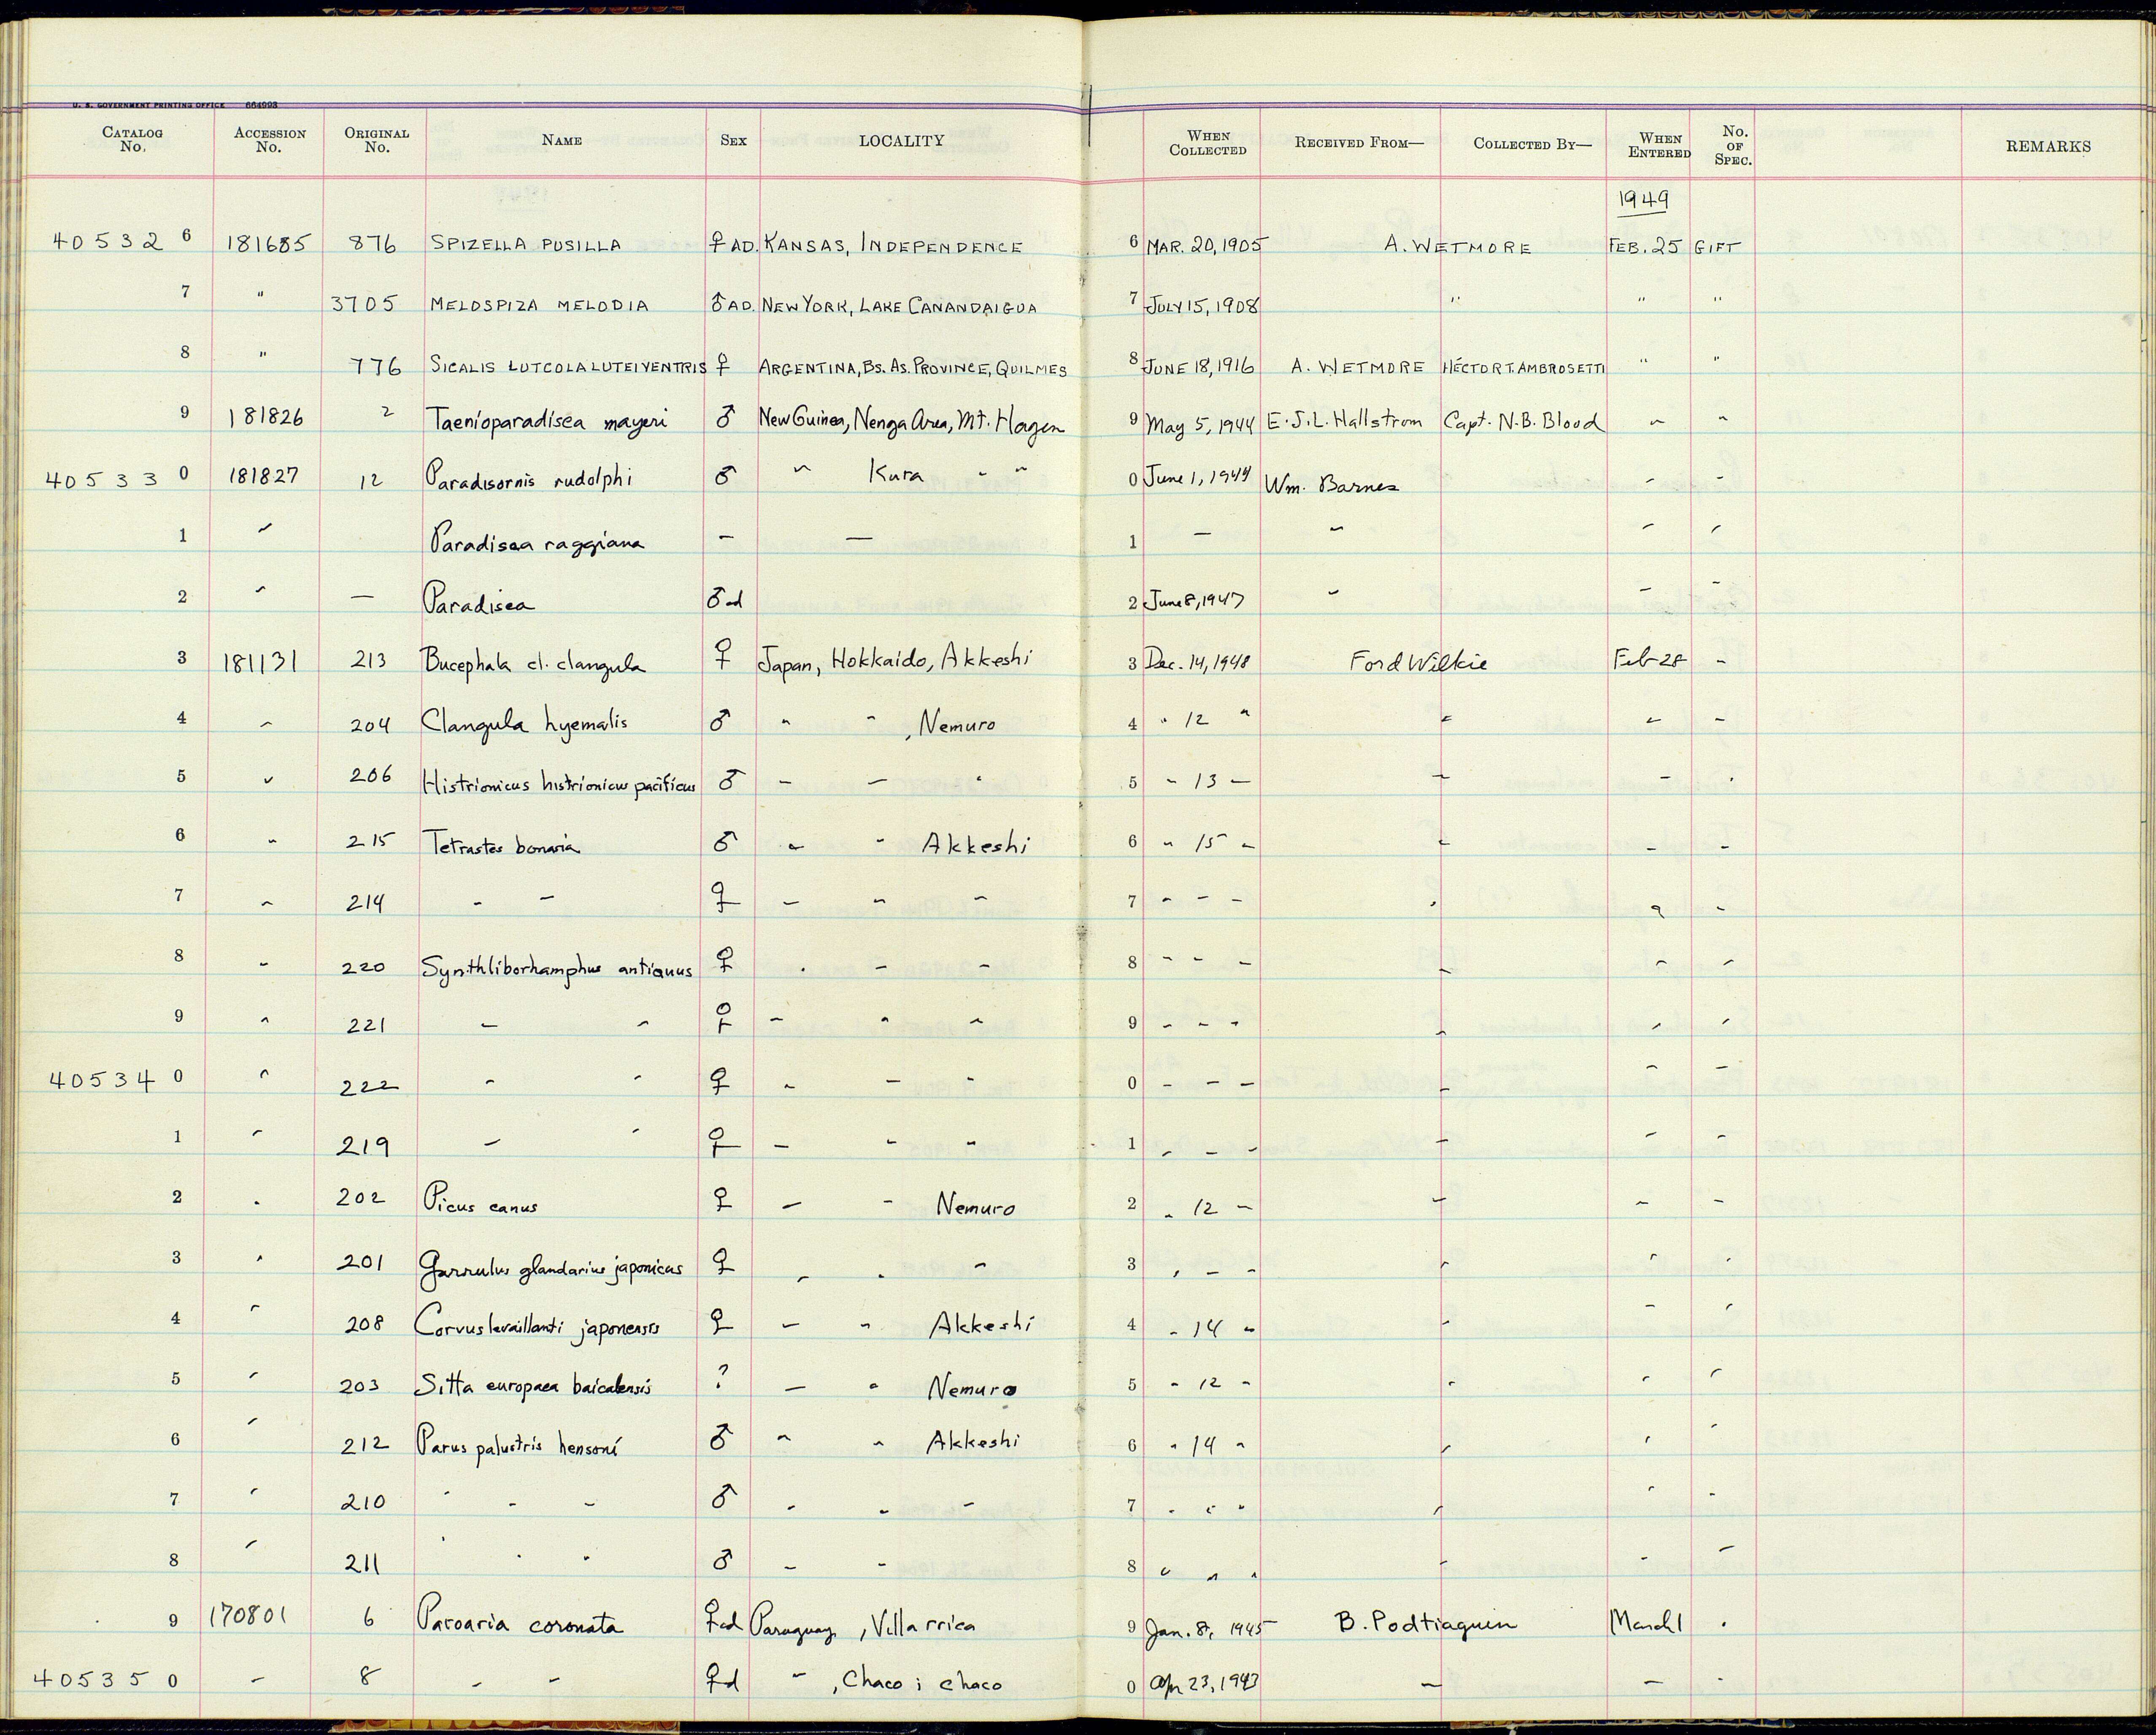 U. S. GOVERNMENT PRINTING OFFICE 664993
CATALOG No. ACCESSION No. ORIGINAL No. NAME SEX LOCALITY WHEN COLLECTED RECEIVED FROM— COLLECTED BY— WHEN ENTERED No. OF SPEC. REMARKS
1949
40532 6 181685 876 SPIZELLA PUSILLA ♀ AD. KANSAS, INDEPENDENCE 6 MAR. 20, 1905 A. WETMORE FEB. 25 GIFT
7 " 3705 MELOSPIZA MELODIA ♂ AD. NEW YORK, LAKE CANANDAIGUA 7 JULY 15, 1908 " " "
8 " 776 SICALIS LUTCOLA LUTEIVENTRIS ♀ ARGENTINA, BS. AS. PROVINCE, QUILMES 8 JUNE 18, 1916 A. WETMORE HÉCTOR T. AMBROSETTI " "
9 181826 2 Taenioparadisea mayeri ♂ New Guinea, Nenga Area, Mt. Hagen 9 May 5, 1944 E.J.L. Hallstrom Capt. N.B. Blood " "
40533 0 181827 12 Paradisornis rudolphi ♂ " Kura " " 0 June 1, 1944 Wm. Barnes " "
1 " Paradisea raggiana — — 1 — " " "
2 " — Paradisea ♂ ad 2 June 8, 1947 " " "
3 181131 213 Bucephala cl. clangula ♀ Japan, Hokkaido, Akkeshi 3 Dec. 14, 1948 Ford Wilkie Feb 28 "
4 " 204 Clangula hyemalis ♂ " " , Nemuro 4 " 12 " " " "
5 " 206 Histrionicus histrionicus pacificus ♂ " " " 5 " 13 " " " "
6 " 215 Tetrastes bonasia ♂ " " Akkeshi 6 " 15 " " " "
7 " 214 " " ♀ " " " 7 " " " " " "
8 " 220 Synthliborhamphus antiquus ♀ " " " 8 " " " " " "
9 " 221 " " ♀ " " " 9 " " " " " "
40534 0 " 222 " " ♀ " " " 0 " " " " " "
1 " 219 " " ♀ " " " 1 " " " " " "
2 " 202 Picus canus ♀ " " Nemuro 2 " 12 " " " "
3 " 201 Garrulus glandarius japonicus ♀ " " " 3 " " " " " "
4 " 208 Corvus levaillanti japonensis ♀ " " Akkeshi 4 " 14 " " " "
5 " 203 Sitta europaea baicalensis ? " " Nemuro 5 " 12 " " " "
6 " 212 Parus palustris hensoni ♂ " " Akkeshi 6 " 14 " " " "
7 " 210 " " " ♂ " " " 7 " " " " " "
8 " 211 " " " ♂ " " 8 " " " " " "
9 170801 6 Paroaria coronata ♀ ad Paraguay, Villa rrica 9 Jan. 8, 1945 B. Podtiaguin March 1 "
40535 0 " 8 " " ♀ d " , Chaco i chaco 0 Apr 23, 1943 " " "